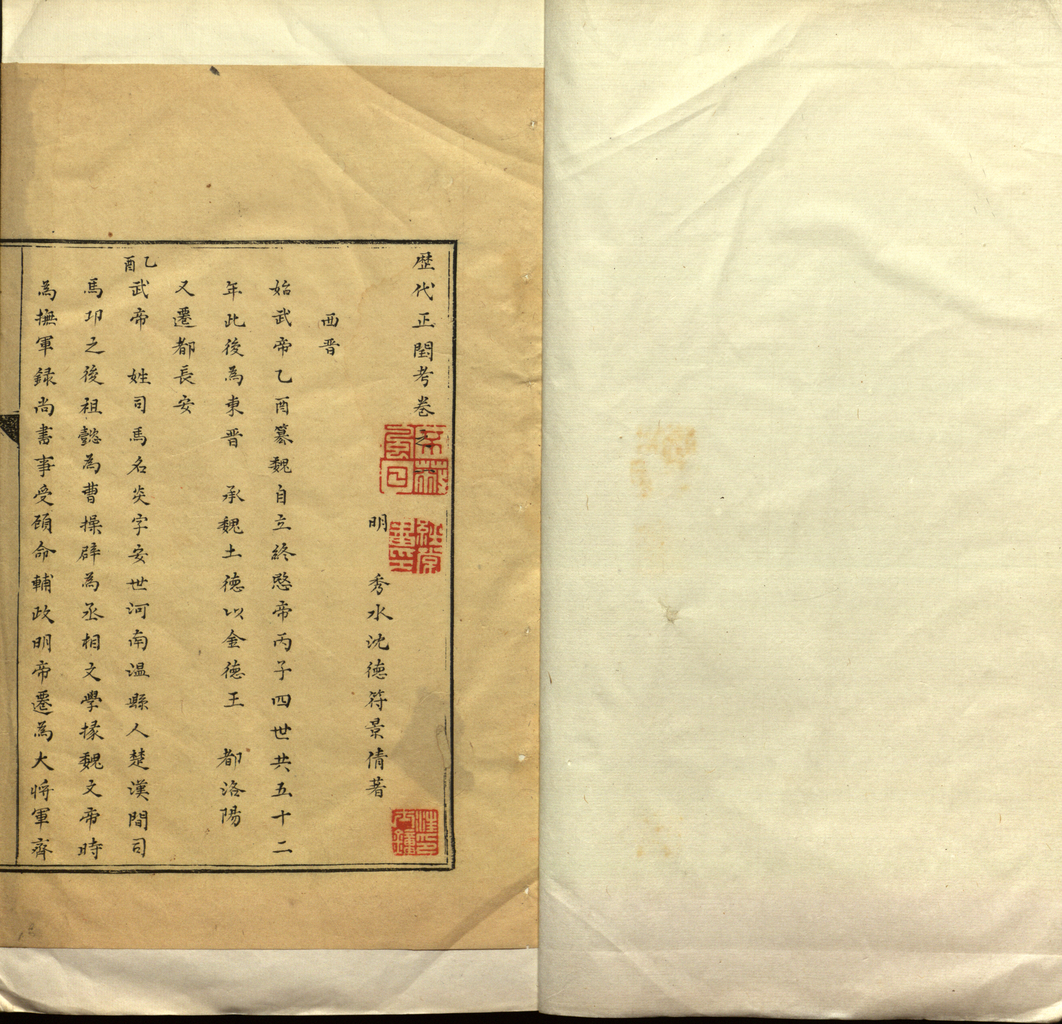 歴代正閏考卷之
明 秀水沈德符景倩著
西晉
始武帝乙酉纂魏自立終愍帝丙子四世共五十二
年此後為東晉 承魏土德以金德王 都洛陽
又遷都長安
乙酉
武帝 姓司馬名炎字安世河南温縣人楚漢間司
馬卬之後祖懿為曹操辟為丞相文學掾魏文帝時
為撫軍録尚書事受頋命輔政明帝遷為大將軍齊